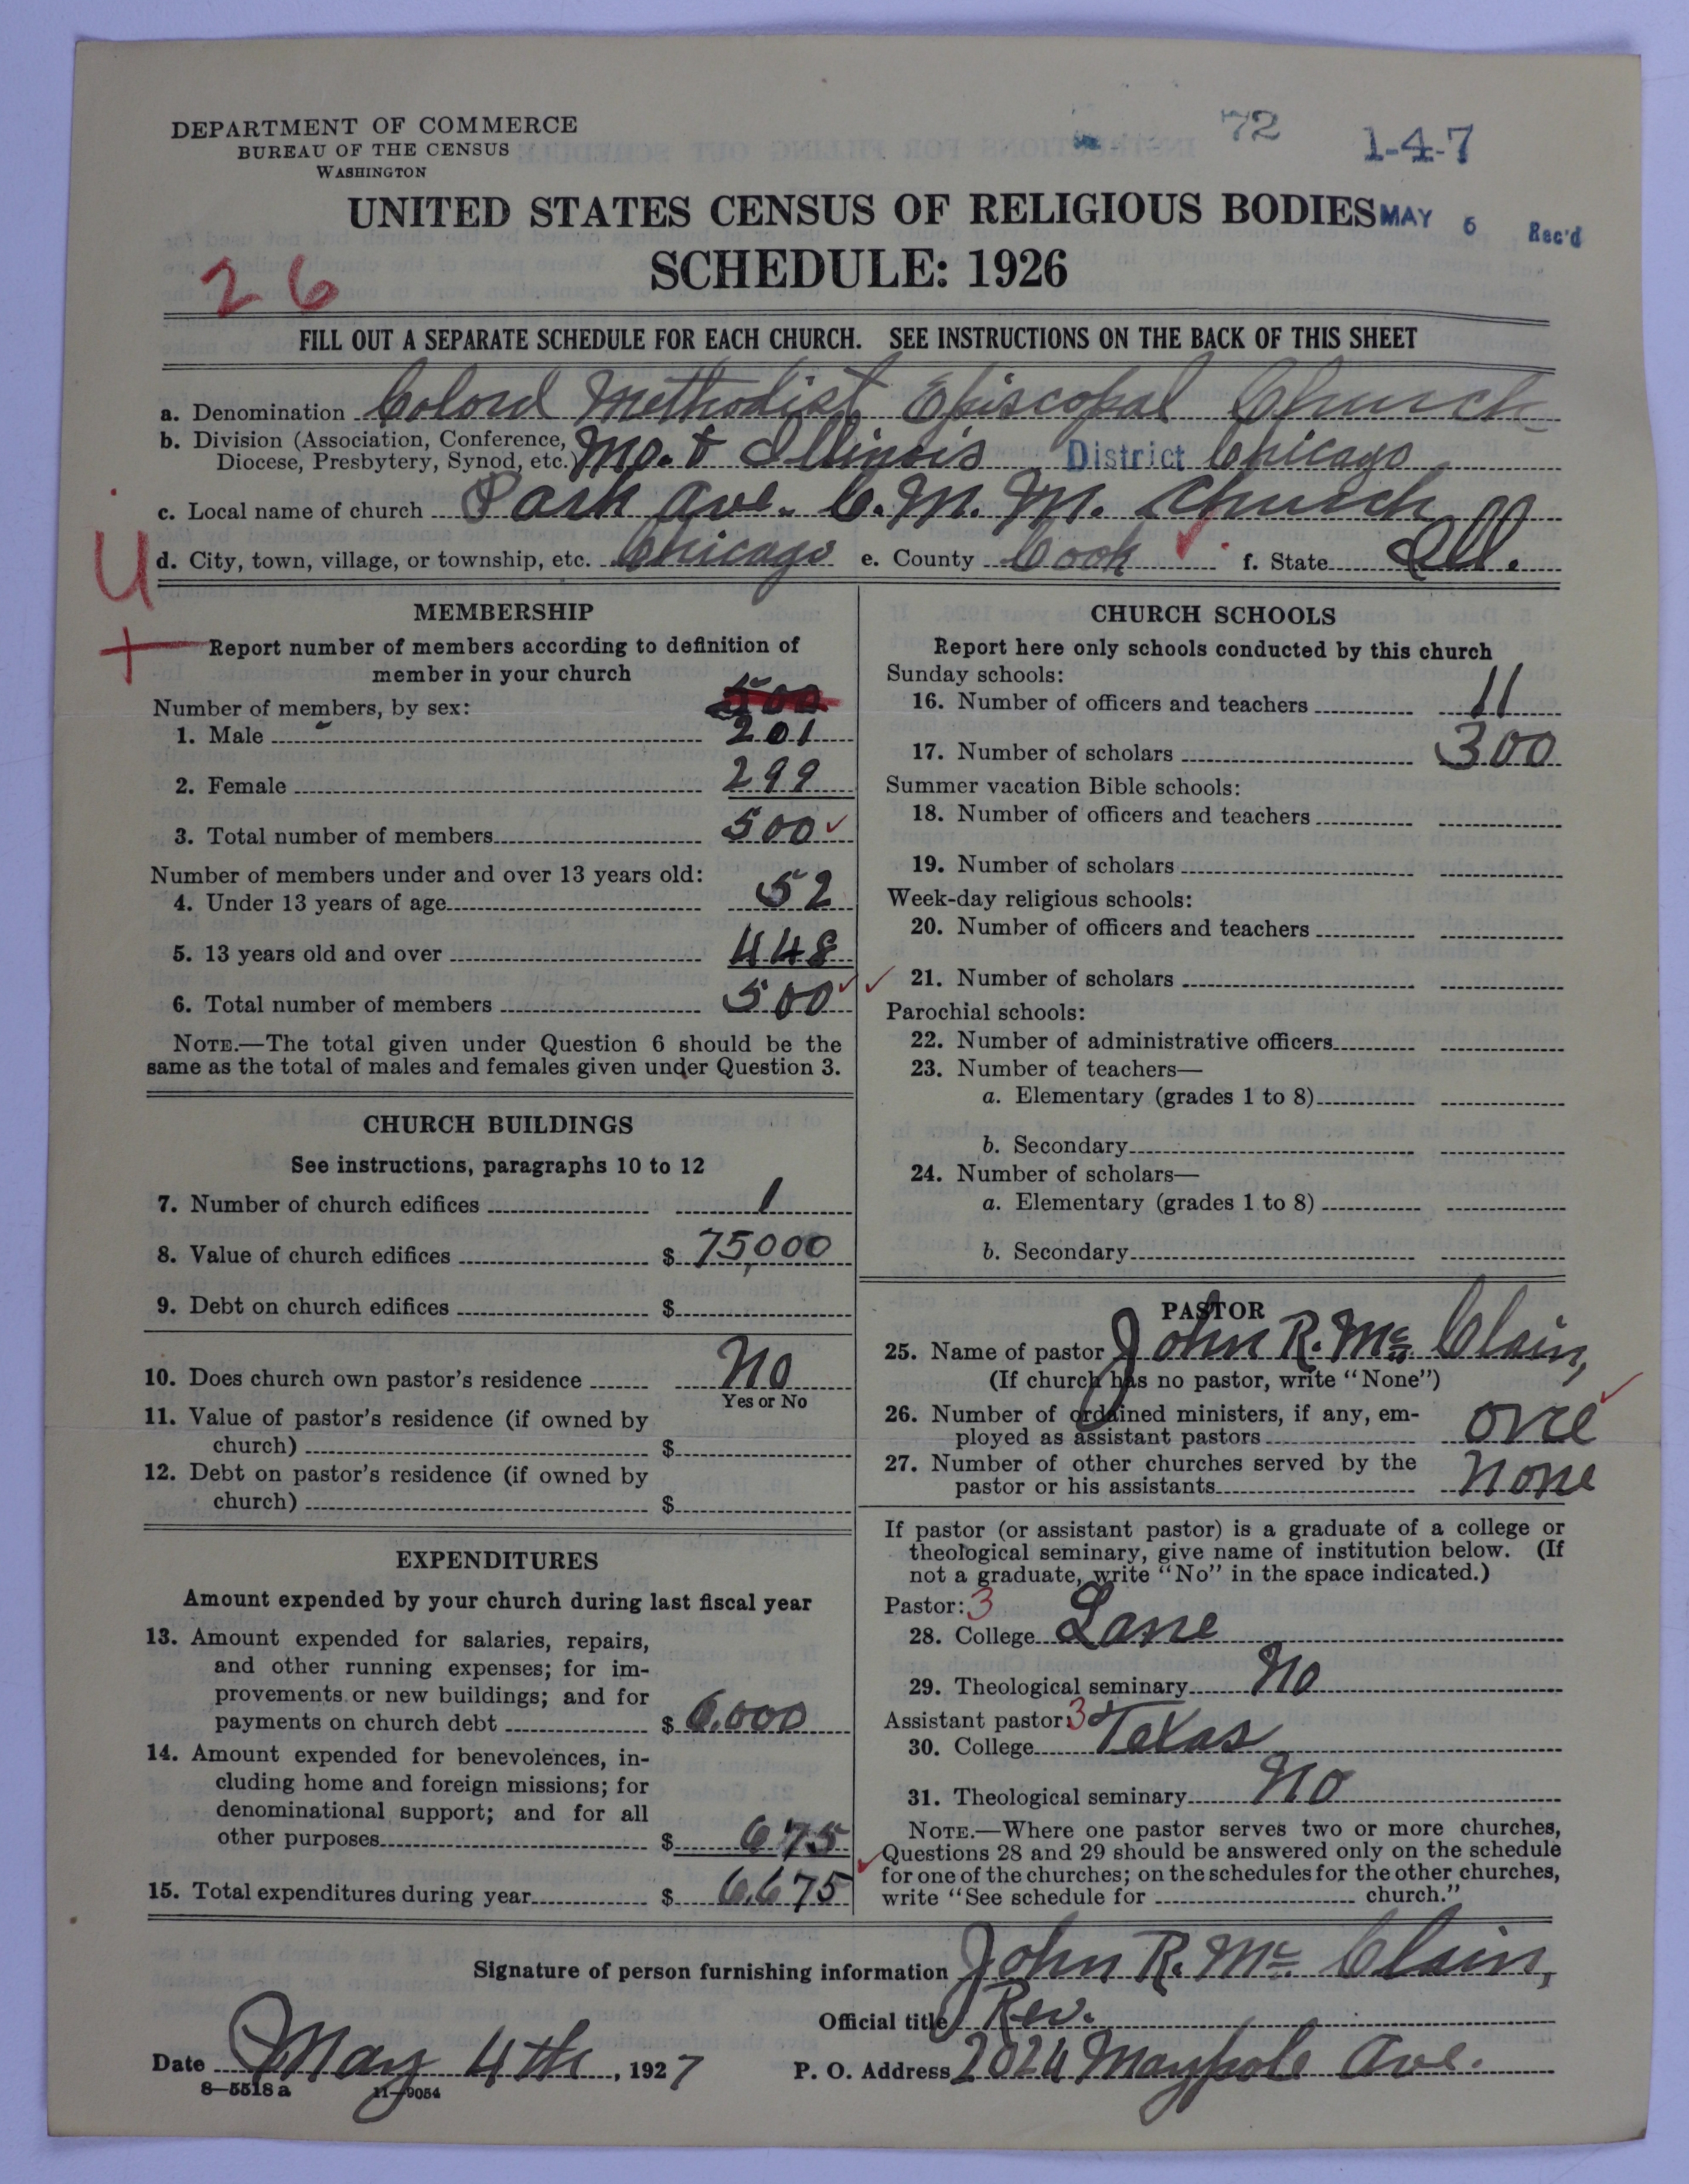 DEPARTMENT OF COMMERCE
BUREAU OF THE CENSUS
WASHINGTON
72
1-4-7
UNITED STATES CENSUS OF RELIGIOUS BODIES
MAY 6 Rec'd
SCHEDULE: 1926
26
FILL OUT A SEPARATE SCHEDULE FOR EACH CHURCH. SEE INSTRUCTIONS ON THE BACK OF THIS SHEET
a. Denomination Colord Methodist Episcopal Church
b. Division (Association, Conference, Diocese, Presbytery, Synod, etc.) Mo. & Illinois District Chicago
c. Local name of church Park Ave. C. M. M. Church
d. City, town, village, or township, etc. Chicago e. County Cook f. State Ill.
U
+
MEMBERSHIP
Report number of members according to definition of
member in your church
500
Number of members, by sex:
1. Male 201
2. Female 299
3. Total number of members 500
Number of members under and over 13 years old:
4. Under 13 years of age 52
5. 13 years old and over 448
6. Total number of members 500
NOTE.—The total given under Question 6 should be the
same as the total of males and females given under Question 3.
CHURCH BUILDINGS
See instructions, paragraphs 10 to 12
7. Number of church edifices 1
8. Value of church edifices $ 75,000
9. Debt on church edifices $
10. Does church own pastor's residence No
Yes or No
11. Value of pastor's residence (if owned by
church) $
12. Debt on pastor's residence (if owned by
church) $
EXPENDITURES
Amount expended by your church during last fiscal year
13. Amount expended for salaries, repairs,
and other running expenses; for im-
provements or new buildings; and for
payments on church debt $ 6.000
14. Amount expended for benevolences, in-
cluding home and foreign missions; for
denominational support; and for all
other purposes $ 675
15. Total expenditures during year $ 6.675
CHURCH SCHOOLS
Report here only schools conducted by this church
Sunday schools:
16. Number of officers and teachers 11
17. Number of scholars 300
Summer vacation Bible schools:
18. Number of officers and teachers
19. Number of scholars
Week-day religious schools:
20. Number of officers and teachers
21. Number of scholars
Parochial schools:
22. Number of administrative officers
23. Number of teachers—
a. Elementary (grades 1 to 8)
b. Secondary
24. Number of scholars—
a. Elementary (grades 1 to 8)
b. Secondary
PASTOR
25. Name of pastor John R. Mc Clain,
(If church has no pastor, write "None")
26. Number of ordained ministers, if any, em-
ployed as assistant pastors one
27. Number of other churches served by the
pastor or his assistants None
If pastor (or assistant pastor) is a graduate of a college or
theological seminary, give name of institution below. (If
not a graduate, write "No" in the space indicated.)
Pastor: 3
28. College Lane
29. Theological seminary No
Assistant pastor: 3
30. College Texas
31. Theological seminary No
NOTE.—Where one pastor serves two or more churches,
Questions 28 and 29 should be answered only on the schedule
for one of the churches; on the schedules for the other churches,
write "See schedule for church."
Signature of person furnishing information John R. Mc Clain,
Official title Rev.
Date May 4th, 1927 P. O. Address 2024 Maypole Ave.
8—5518a 11—9054